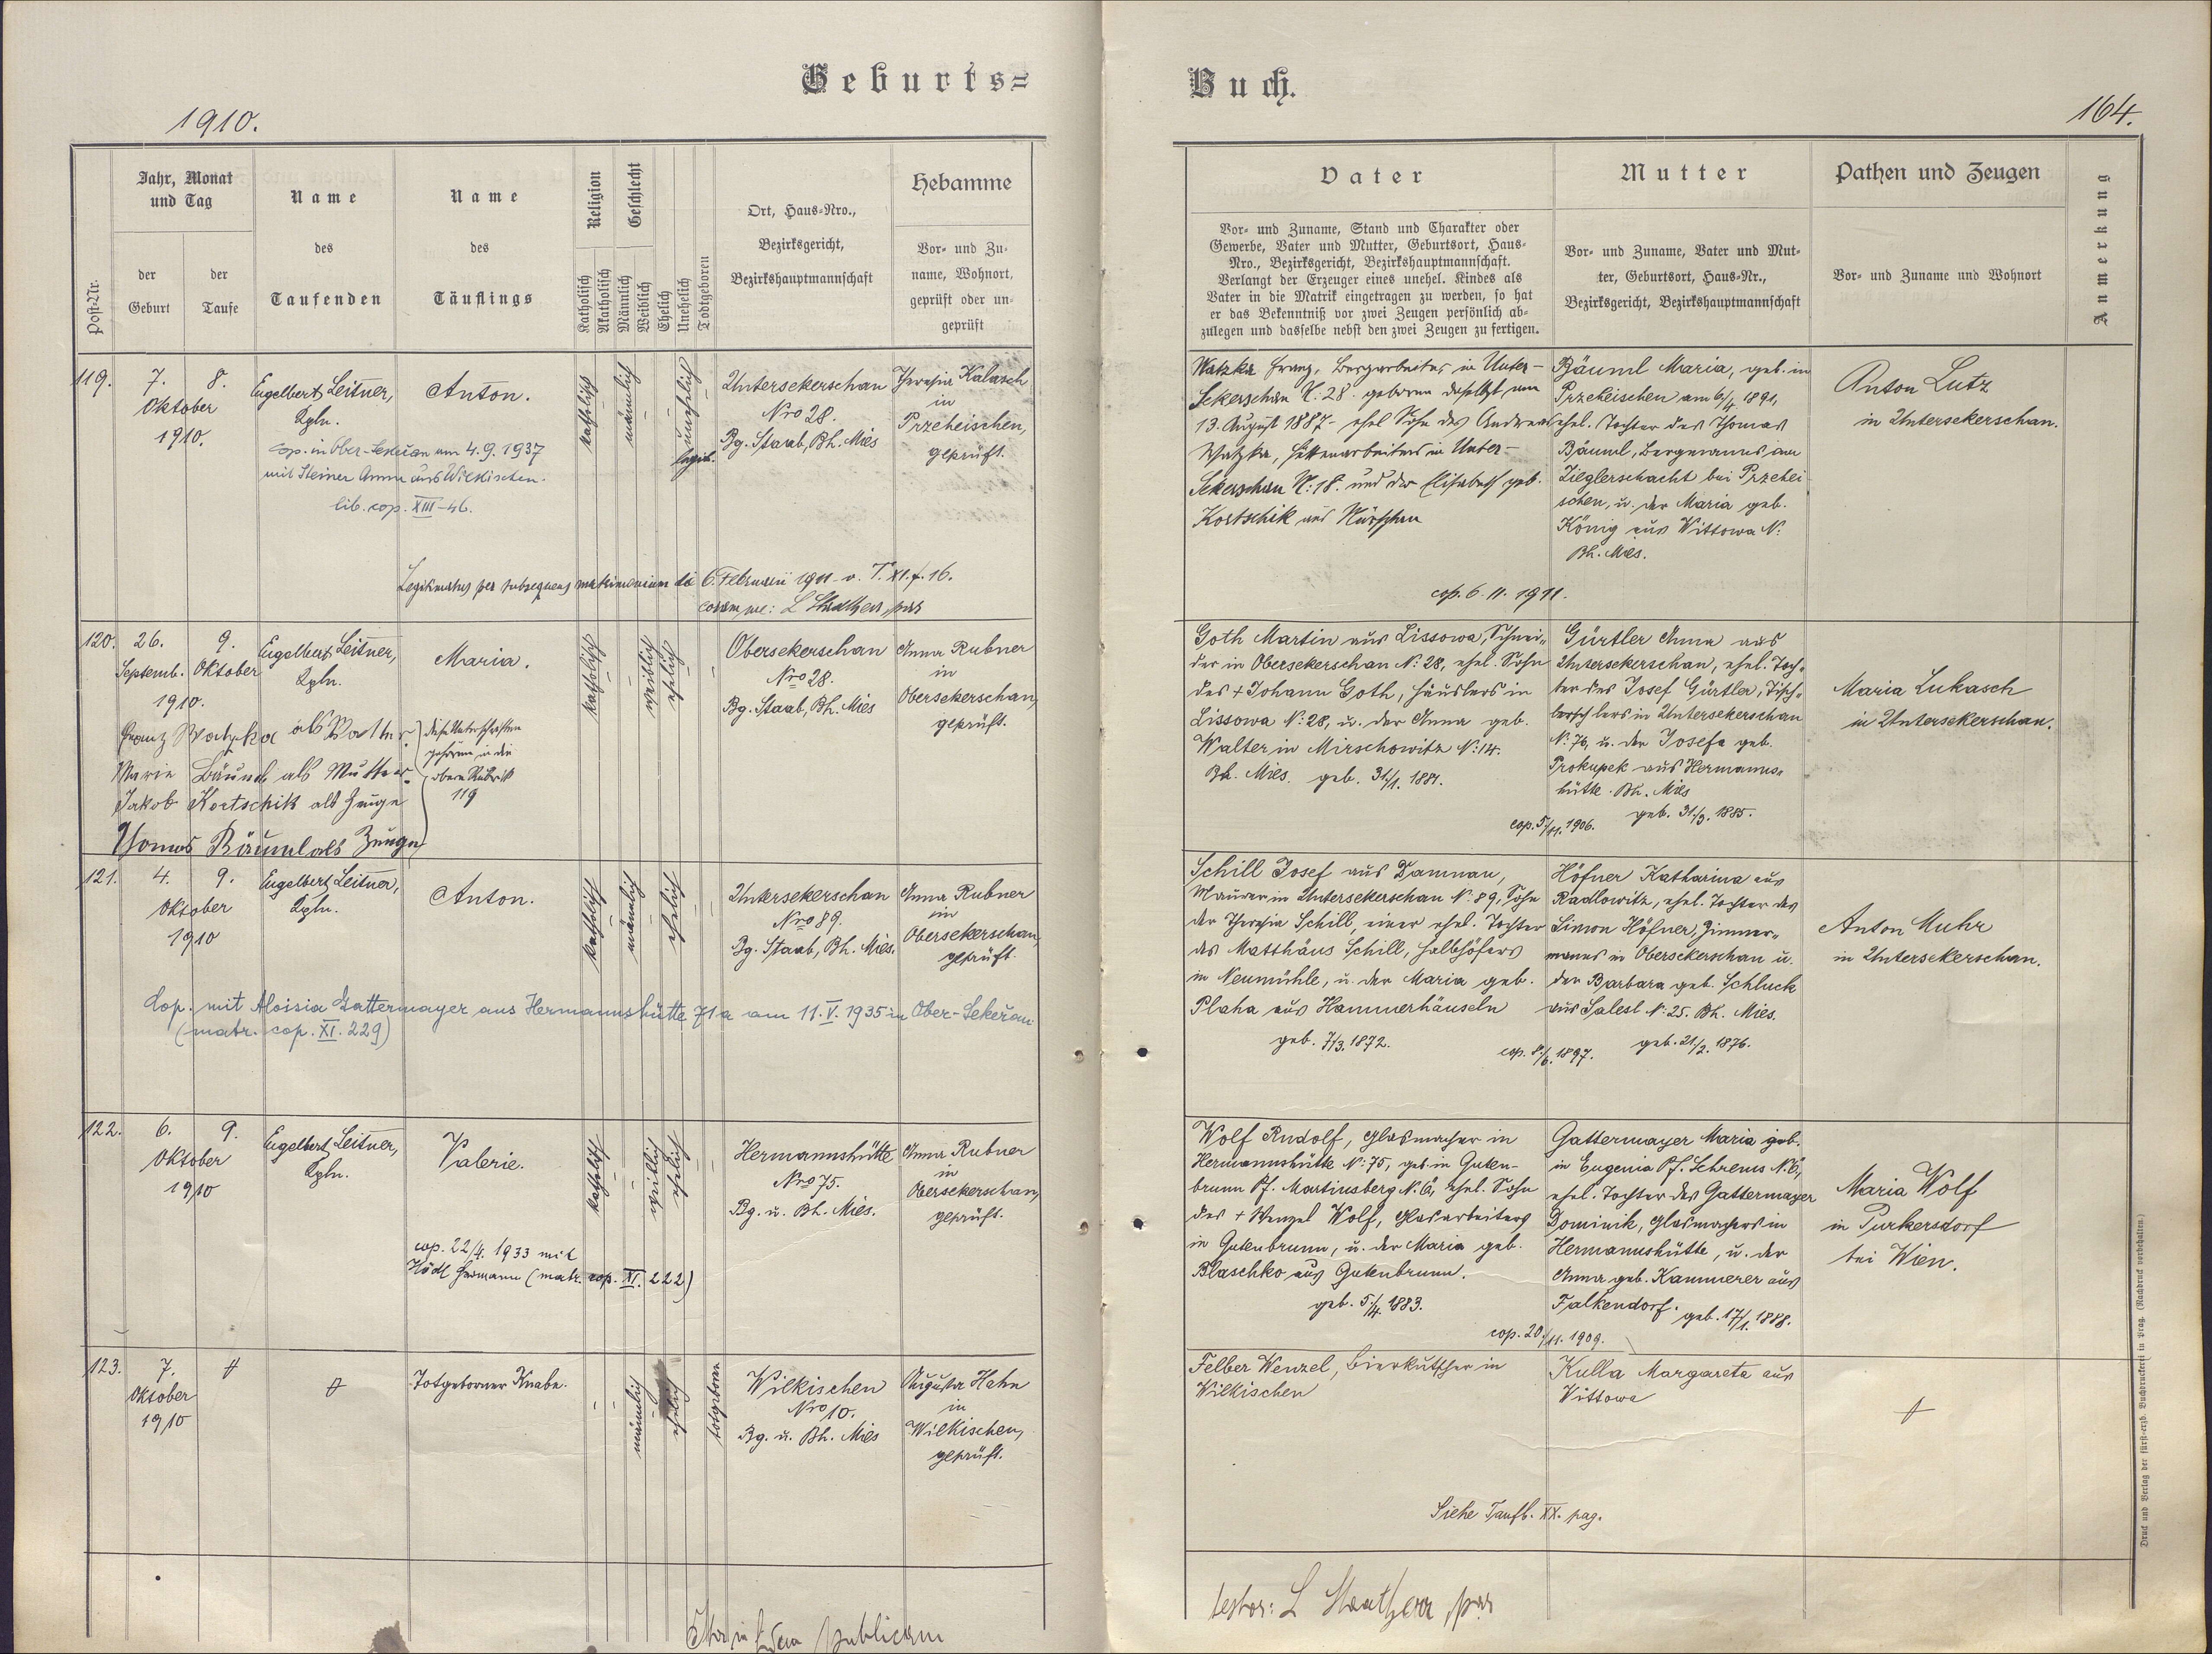 Geburts=
Buch.
1910.
164.
Post-Nr.
Jahr, Monat
und Tag
der
Geburt
der
Taufe
Name
des
Taufenden
Name
des
Täuflings
Religion
Geschlecht
Katholisch
Akatholisch
Männlich
Weiblich
Ehelich
Unehelich
Todtgeboren
Ort, Haus=Nro.,
Bezirksgericht,
Bezirkshauptmannschaft
Hebamme
Vor- und Zu-
name, Wohnort,
geprüft oder un-
geprüft
Vater
Vor- und Zuname, Stand und Charakter oder
Gewerbe, Vater und Mutter, Geburtsort, Haus-
Nro., Bezirksgericht, Bezirkshauptmannschaft.
Verlangt der Erzeuger eines unehel. Kindes als
Vater in die Matrik eingetragen zu werden, so hat
er das Bekenntniß vor zwei Zeugen persönlich ab-
zulegen und dasselbe nebst den zwei Zeugen zu fertigen.
Mutter
Vor- und Zuname, Vater und Mut-
ter, Geburtsort, Haus-Nr.,
Bezirksgericht, Bezirkshauptmannschaft
Pathen und Zeugen
Vor- und Zuname und Wohnort
Anmerkung
119.
7.
8.
Oktober
1910.
Engelbert Leitner,
Kpln.
cop. in Ober-Sekeřan am 4.9.1937
mit Steiner Anna aus Wilkischen.
lib. cop. XIII-46.
Anton.
katholisch
männlich
unehelich
legit.
Untersekerschan
Nro 28.
Bg. Staab, Bh. Mies
Theresia Kalasch
in
Przeheischen,
geprüft.
Watzka Franz, Bergarbeiter in Unter-
Sekerschan N. 28. geboren daselbst am
13. August 1887 - ehel. Sohn des Andreas
Watzka, Hüttenarbeiters in Unter-
Sekerschan N: 18. und der Elisabeth geb.
Kortschik aus Nürschan
Bäuml Maria, geb. in
Przeheischen am 6/4 1891,
ehel. Tochter des Thomas
Bäuml, Bergmanns am
Zieglerschacht bei Przehei
schen, u. der Maria geb.
König aus Wittowa N:
Bh. Mies.
Anton Lutz
in Untersekerschan.
Legitimatus per subsequens matrimonium dto 6. Februarii 1911 - v. T. XI. f. 16.
coram me:
cop. 6. II. 1911.
120.
26.
9.
Septemb.
Oktober
1910.
Engelbert Leitner,
Kpln.
Maria.
katholisch
weiblich
ehelich
Obersekerschan
Nro 28.
Bg. Staab, Bh. Mies
Anna Rubner
in
Obersekerschan,
geprüft.
Goth Martin aus Lissowa, Schnei-
der in Obersekerschan N: 28, ehel. Sohn
des + Johann Goth, Häuslers in
Lissowa N: 28, u. der Anna geb.
Walter in Mirschowitz N: 14.
Bh. Mies. geb. 31/1. 1881.
Gürtler Anna aus
Untersekerschan, ehel. Toch-
ter des Josef Gürtler, Tisch-
lers in Untersekerschan
N: 76, u. der Josefa geb.
Prokupek aus Hermanns-
hütte. Bh. Mies
geb. 31/3. 1885.
cop. 5/11. 1906.
Maria Lukasch
in Untersekerschan.
Franz Watzka als Vater.
Marie Bäuml als Mutter
Jakob Kortschik als Zeuge
Thomas Bäuml als Zeuge
diese Unterschriften
gehören in die
obere Rubrik
119
121.
4.
9.
Oktober
1910
Engelbert Leitner,
Kpln.
Anton.
katholisch
männlich
ehelich
Untersekerschan
Nro 89.
Bg. Staab, Bh. Mies.
Anna Rubner
in
Obersekerschan,
geprüft.
Schill Josef aus Damnau,
Maurer in Untersekerschan N: 89, Sohn
der Theresia Schill, einer ehel. Tochter
des Matthäus Schill, Halbhöfers
in Neumühle, u. der Maria geb.
Plaha aus Hammerhäuseln
geb. 7/3. 1872.
Höfner Katharina aus
Radlowitz, ehel. Tochter des
Simon Höfner, Zimmer-
manns in Obersekerschan u.
der Barbara geb. Schluck
aus Salesl N: 25. Bh. Mies.
geb. 21/2. 1876.
cop. 8/6. 1897.
Anton Muhr
in Untersekerschan.
Cop. mit Aloisia Gattermayer aus Hermannshütte 71a am 11. V. 1935 in Ober-Sekeřan
(matr. cop. XI. 229)
122.
6.
9.
Oktober
1910
Engelbert Leitner,
Kpln.
Valerie.
katholisch
weiblich
ehelich
Hermannshütte
Nro 75.
Bg. u. Bh. Mies.
Anna Rubner
in
Obersekerschan,
geprüft.
cop. 22/4. 1933 mit
Hödl Hermann (matr. cop. XI. 222)
Wolf Rudolf, Glasmacher in
Hermannshütte N: 75, geb. in Guten-
brunn Pf. Martinsberg N. 6, ehel. Sohn
des + Wenzel Wolf, Glasarbeiters
in Gutenbrunn, u. der Maria geb.
Blaschko aus Gutenbrunn.
geb. 5/4. 1883.
Gattermayer Maria geb.
in Eugenia Pf. Schrems N. 6,
ehel. Tochter des Gattermayer
Dominik, Glasmachers in
Hermannshütte, u. der
Anna geb. Kammerer aus
Falkendorf. geb. 17/1. 1888.
cop. 20/11. 1909.
Maria Wolf
in Purkersdorf
bei Wien.
123.
7.
Oktober
1910
Totgeborner Knabe.
männlich
ehelich
totgeboren
Wilkischen
Nro 10.
Bg. u. Bh. Mies
Augusta Hahn
in
Wilkischen,
geprüft.
Felber Wenzel, Bierkutscher in
Wilkischen
Kulla Margareta aus
Wittowa
Siehe Taufb. XX. pag.
publicam
testor:
Druck und Verlag der fürst-erzb. Buchdruckerei in Prag. (Nachdruck vorbehalten.)